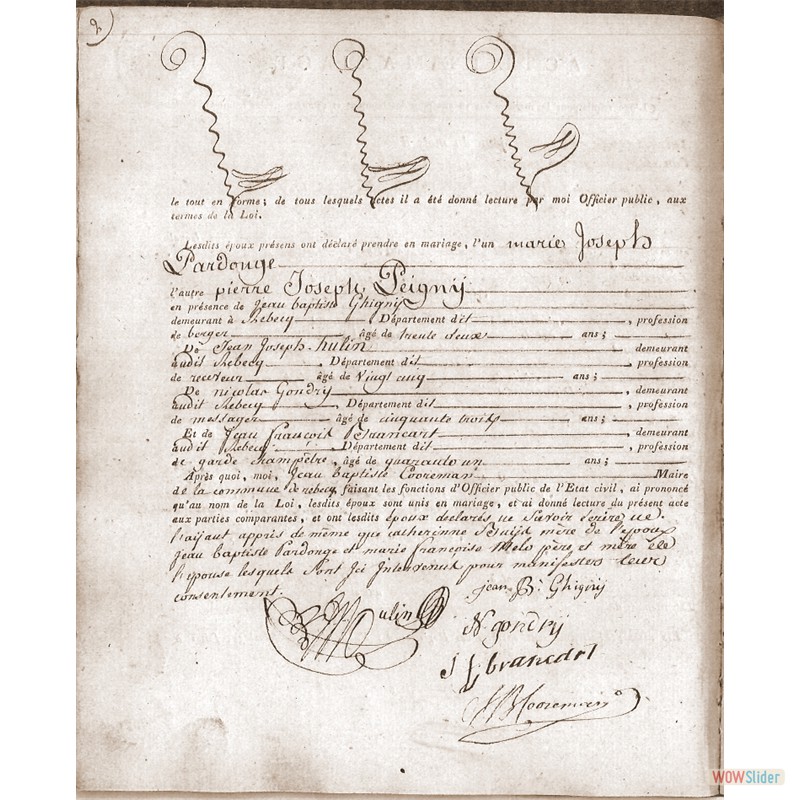 2
le tout en forme; de tous lesquels actes il a été donné lecture par moi Officier public, aux
termes de la Loi.
Lesdits époux présens ont déclaré prendre en mariage, l'un marie Joseph
Pardonge
l'autre pierre Joseph Peigny
en présence de Jean baptiste Ghigny
demeurant à Rebecq Département dit , profession
de berger âgé de trente deux ans;
De Jean Joseph hulin demeurant
audit Rebecq Département dit profession
de receveur âgé de Vingt cinq ans;
De nicolas Gondry , demeurant
audit Rebecq , Département dit , profession
de messager âgé de cinquante trois ans;
Et de Jean francois Brancart , demeurant
audit Rebecq Département dit , profession
de garde champêtre, âgé de quarante un ans;
Après quoi, moi, Jean baptiste Cooreman Maire
de la commune de rebecq, faisant les fonctions d'Officier public de l'Etat civil, ai prononcé
qu'au nom de la Loi, lesdits époux sont unis en mariage, et ai donné lecture du présent acte
aux parties comparantes, et ont lesdits époux declarés ne Savoir Ecrire ne
appris de même que catherinne mère de l'epoux
jean baptiste Pardonge et marie françoise Melo père et mère de
l'Epouse lesquels Sont Ici Intervenus pour manifester leur
consentement.
jean Bt Ghigny
hulin
N gondry
J f brancart
J B Cooreman
WOWSlider